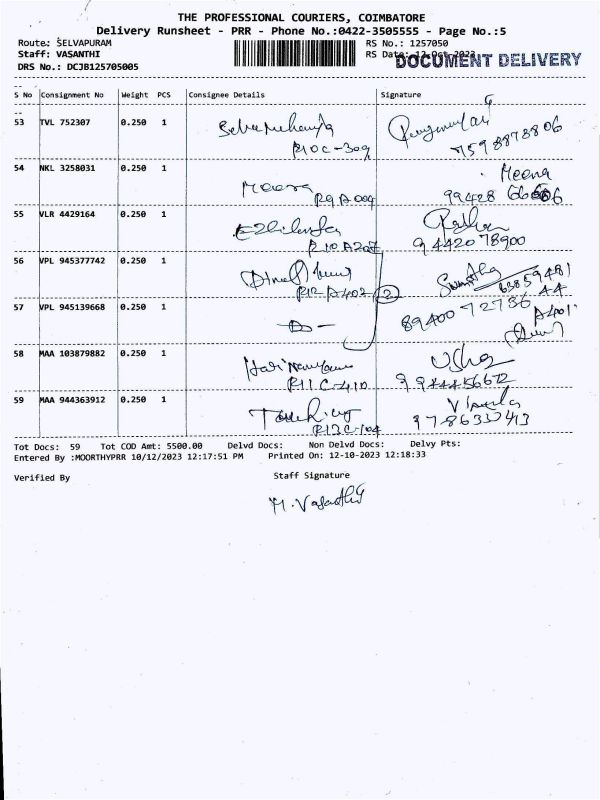 THE PROFESSIONAL COURIERS, COIMBATORE
Delivery Runsheet - PRR - Phone No.:0422-3505555 - Page No.:5
Route: SELVAPURAM
RS No.: 1257050
Staff: VASANTHI
RS Date: 12-Oct-2023
DOCUMENT DELIVERY
DRS No.: DCJB125705005
S No Consignment No Weight PCS Consignee Details Signature
53 TVL 752307 0.250 1
R10C-309
7598878806
54 NKL 3258031 0.250 1 Meena Meena
R9A004 99428
55 VLR 4429164 0.250 1
R10A207 9442078900
56 VPL 945377742 0.250 1
R12A402 2
57 VPL 945139668 0.250 1 -Do- 8940072736
A401
58 MAA 103879882 0.250 1 Usha
R11C-410
59 MAA 944363912 0.250 1
R13C-104
Tot Docs: 59 Tot COD Amt: 5500.00 Delvd Docs: Non Delvd Docs: Delvy Pts:
Entered By :MOORTHYPRR 10/12/2023 12:17:51 PM Printed On: 12-10-2023 12:18:33
Verified By Staff Signature
M. Vasanthi